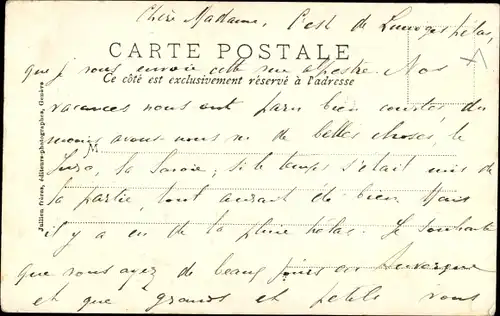 Chère Madame, C'est de Limoges hélas,
CARTE POSTALE
que je vous envoie cette vue alpestre. Nos
Ce côté est exclusivement réservé à l'adresse
vacances nous ont paru bien courtes du
moins avons nous vu de belles choses, le
M
Jura, la Savoie; si le temps s'était mis de
la partie, tout aurait de bien Mais
il y a eu de la pluie hélas. Je souhaite
que vous ayez de beaux jours en Auvergne
et que grands et petits vous
Jullien frères, éditeurs-photographes, Genève